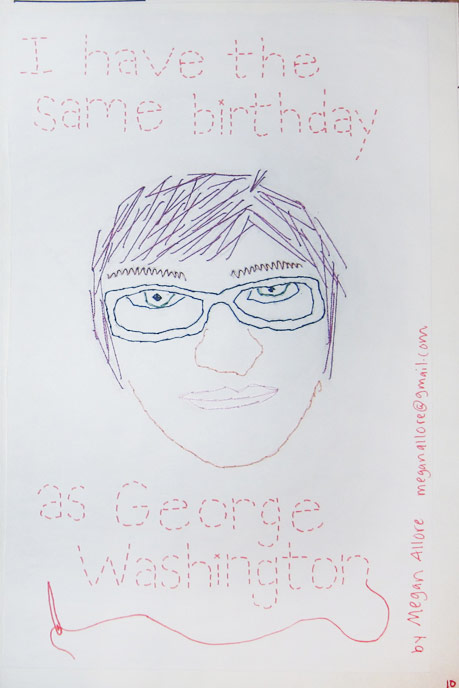 I have the
same birthday
as George
Washington
by Megan Allore meganallore@gmail.com
10